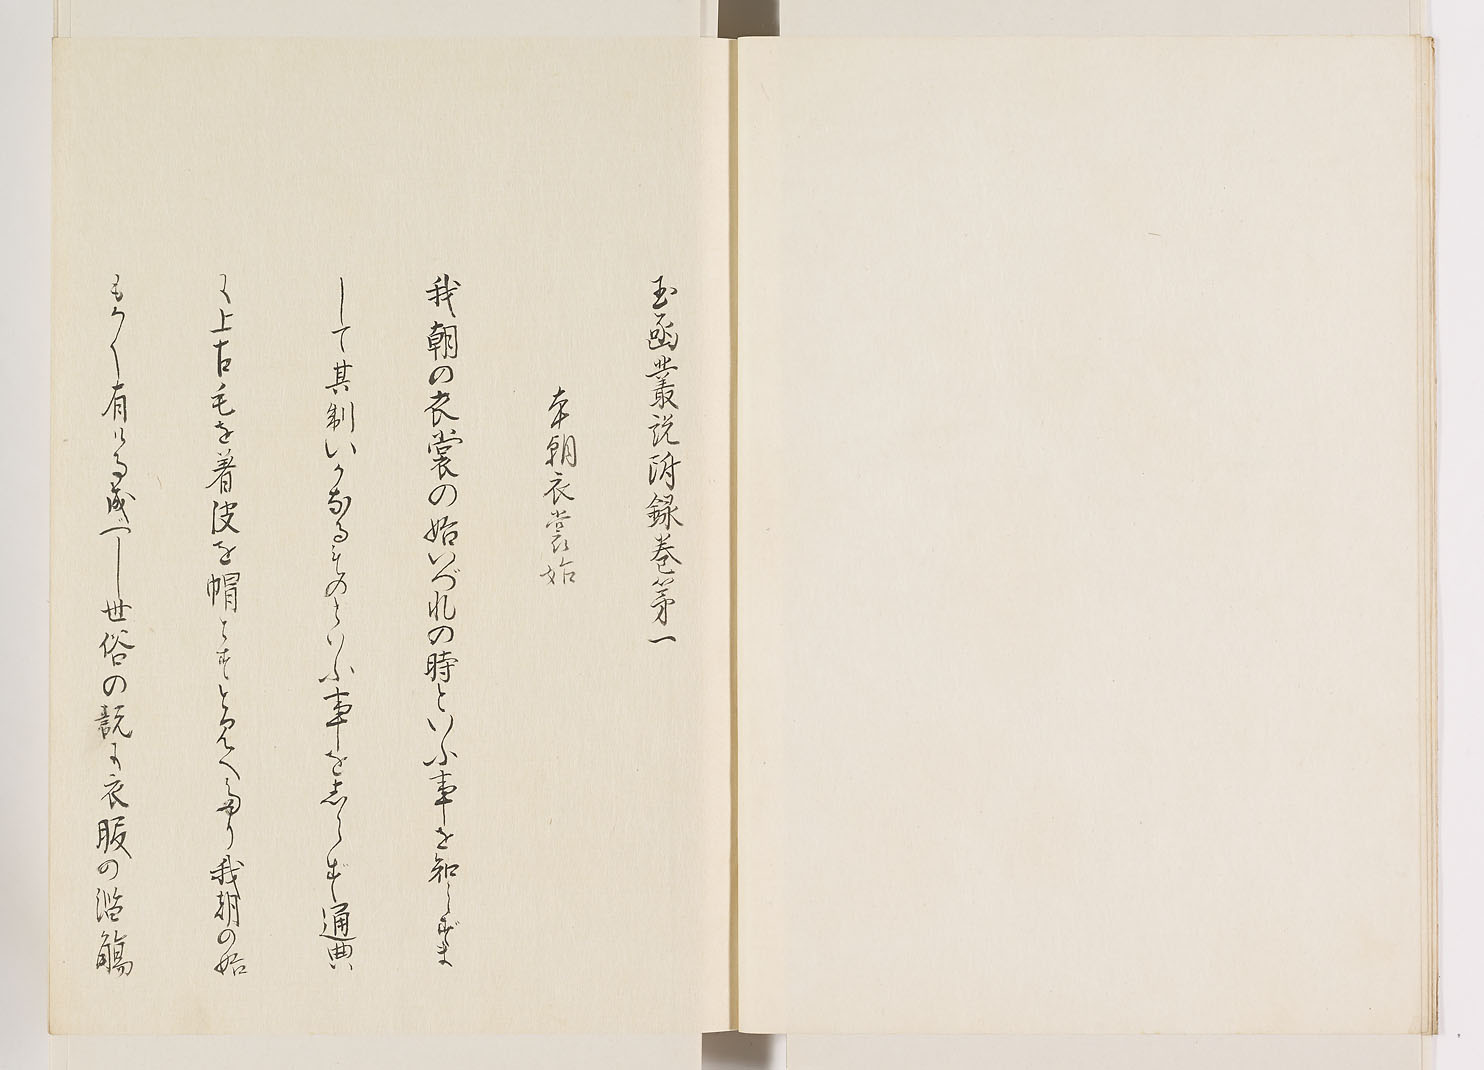 玉函叢説附録巻第一
本朝衣裳始
我朝の衣裳の始いづれの時といふ事を知らずま
して其制いかなるものといふ事を志らず通典
に上古毛を着皮を帽とすと見へたり我朝の始
もかく有ける成べし世俗の説に衣服の濫觴